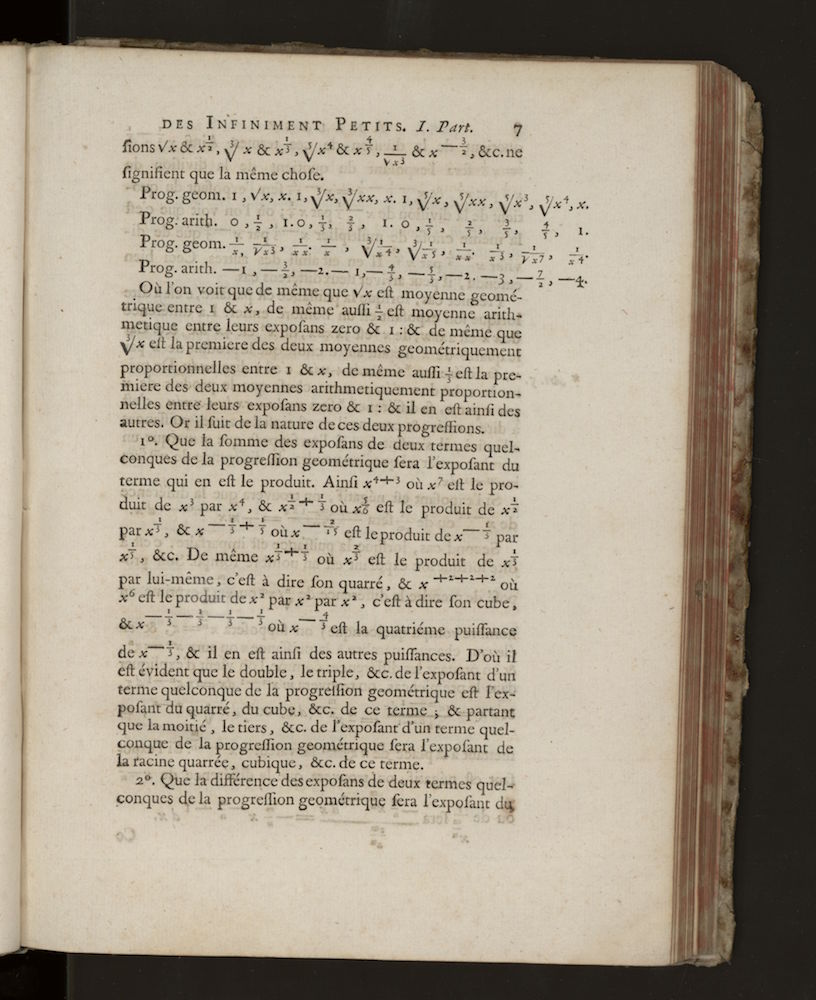 DES INFINIMENT PETITS. I. Part. 7
ſions √x & x^{1/2}, ∛x & x^{1/3}, ⁵√x⁴ & x^{4/5}, 1/√x³ & x^{—3/2}, &c. ne
ſignifient que la même choſe.
Prog. geom. 1, √x, x. 1, ∛x, ∛xx, x. 1, ⁵√x, ⁵√xx, ⁵√x³, ⁵√x⁴, x.
Prog. arith. 0, 1/2, 1. 0, 1/3, 2/3, 1. 0, 1/5, 2/5, 3/5, 4/5, 1.
Prog. geom. 1/x, 1/√x³, 1/xx. 1/x, ∛1/x⁴, ∛1/x⁵, 1/xx. 1/x³, 1/√x⁷, 1/x⁴.
Prog. arith. —1, —3/2, —2. —1, —4/3, —5/3, —2. —3, —7/2, —4.
Où l'on voit que de même que √x eſt moyenne geomé-
trique entre 1 & x, de même auſſi 1/2 eſt moyenne arith-
metique entre leurs expoſans zero & 1 : & de même que
∛x eſt la premiere des deux moyennes geométriquement
proportionnelles entre 1 & x, de même auſſi 1/3 eſt la pre-
miere des deux moyennes arithmetiquement proportion-
nelles entre leurs expoſans zero & 1 : & il en eſt ainſi des
autres. Or il ſuit de la nature de ces deux progreſſions.
1°. Que la ſomme des expoſans de deux termes quel-
conques de la progreſſion geométrique ſera l'expoſant du
terme qui en eſt le produit. Ainſi x^{4+3} où x⁷ eſt le pro-
duit de x³ par x⁴, & x^{1/2+1/3} où x^{5/6} eſt le produit de x^{1/2}
par x^{1/3}, & x^{—1/3+1/5} où x^{—2/15} eſt le produit de x^{—1/3} par
x^{1/5}, &c. De même x^{1/3+1/3} où x^{2/3} eſt le produit de x^{1/3}
par lui-même, c'eſt à dire ſon quarré, & x^{+2+2+2} où
x⁶ eſt le produit de x² par x² par x², c'eſt à dire ſon cube,
& x^{—1/3—1/3—1/3—1/3} où x^{—4/3} eſt la quatriéme puiſſance
de x^{—1/3}, & il en eſt ainſi des autres puiſſances. D'où il
eſt évident que le double, le triple, &c. de l'expoſant d'un
terme quelconque de la progreſſion geométrique eſt l'ex-
poſant du quarré, du cube, &c. de ce terme ; & partant
que la moitié, le tiers, &c. de l'expoſant d'un terme quel-
conque de la progreſſion geométrique ſera l'expoſant de
la racine quarrée, cubique, &c. de ce terme.
2°. Que la différence des expoſans de deux termes quel-
conques de la progreſſion geométrique ſera l'expoſant du